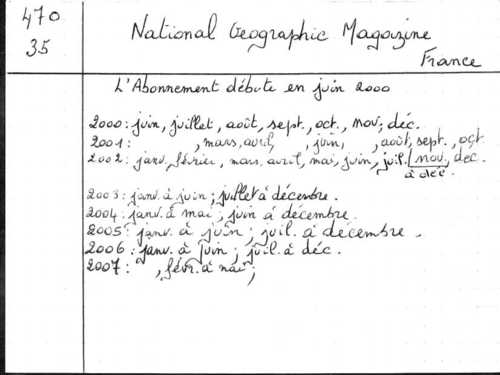 470
35
National Geographic Magazine
France
L'Abonnement débute en juin 2000
2000: juin, juillet, août, sept., oct., nov; déc.
2001: , mars, avril, , juin, , août, sept., oct
2002: janv, février, mars, avril, mai, juin, juil. nov, dec.
à déc.
2003: janv. à juin; juillet à décembre.
2004: janv. à mai; juin à décembre.
2005: janv. à juin; juil. à décembre.
2006: janv. à juin; juil. à déc.
2007: , févr. à mai;